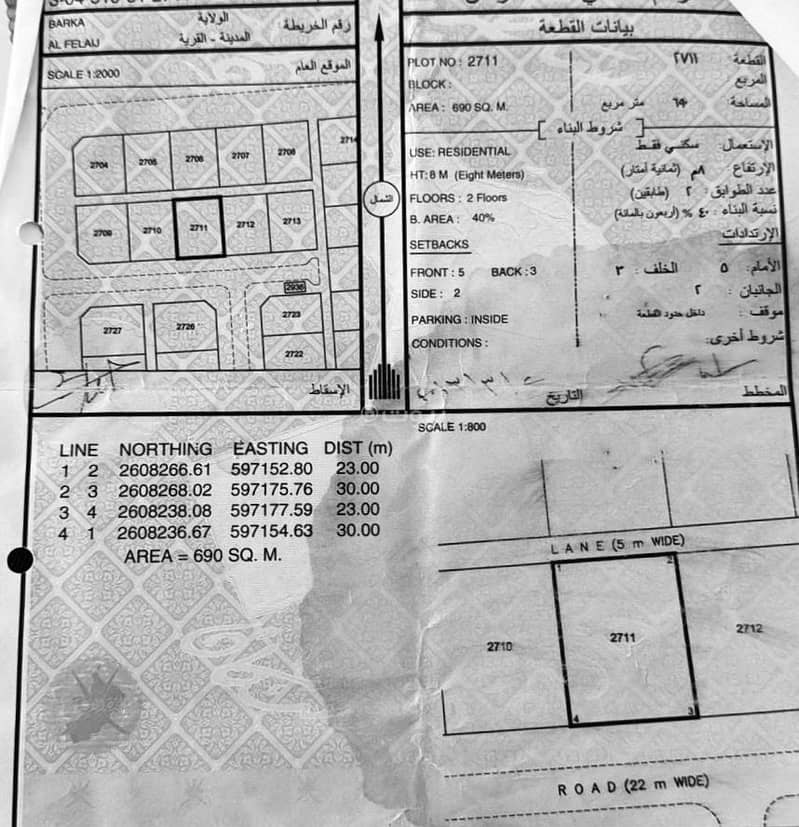 BARKA
الولاية
رقم الخريطة
AL FELAIJ
المدينة - القرية
SCALE 1:2000
الموقع العام
2704 2705 2706 2707 2708 2714
2709 2710 2711 2712 2713
2936
2727 2726 2723
2722
الإسقاط
الشمال
بيانات القطعة
PLOT NO : 2711
القطعة : ٢٧١١
BLOCK :
المربع :
AREA : 690 SQ. M.
المساحة : ٦٩٠ متر مربع
شروط البناء
USE: RESIDENTIAL
الإستعمال: سكني فقط
HT: 8 M (Eight Meters)
الإرتفاع: ٨م (ثمانية أمتار)
FLOORS : 2 Floors
عدد الطوابق : ٢ (طابقين)
B. AREA : 40%
نسبة البناء : ٤٠ % (أربعون بالمائة)
SETBACKS
الإرتدادات
FRONT : 5 BACK : 3
الأمام: ٥ الخلف : ٣
SIDE : 2
الجانبان : ٢
PARKING : INSIDE
موقف : داخل حدود القطعة
CONDITIONS :
شروط أخرى:
التاريخ
المخطط
LINE NORTHING EASTING DIST (m)
1 2 2608266.61 597152.80 23.00
2 3 2608268.02 597175.76 30.00
3 4 2608238.08 597177.59 23.00
4 1 2608236.67 597154.63 30.00
AREA = 690 SQ. M.
SCALE 1:800
LANE (5 m WIDE)
1 2
2710 2711 2712
4 3
ROAD (22 m WIDE)